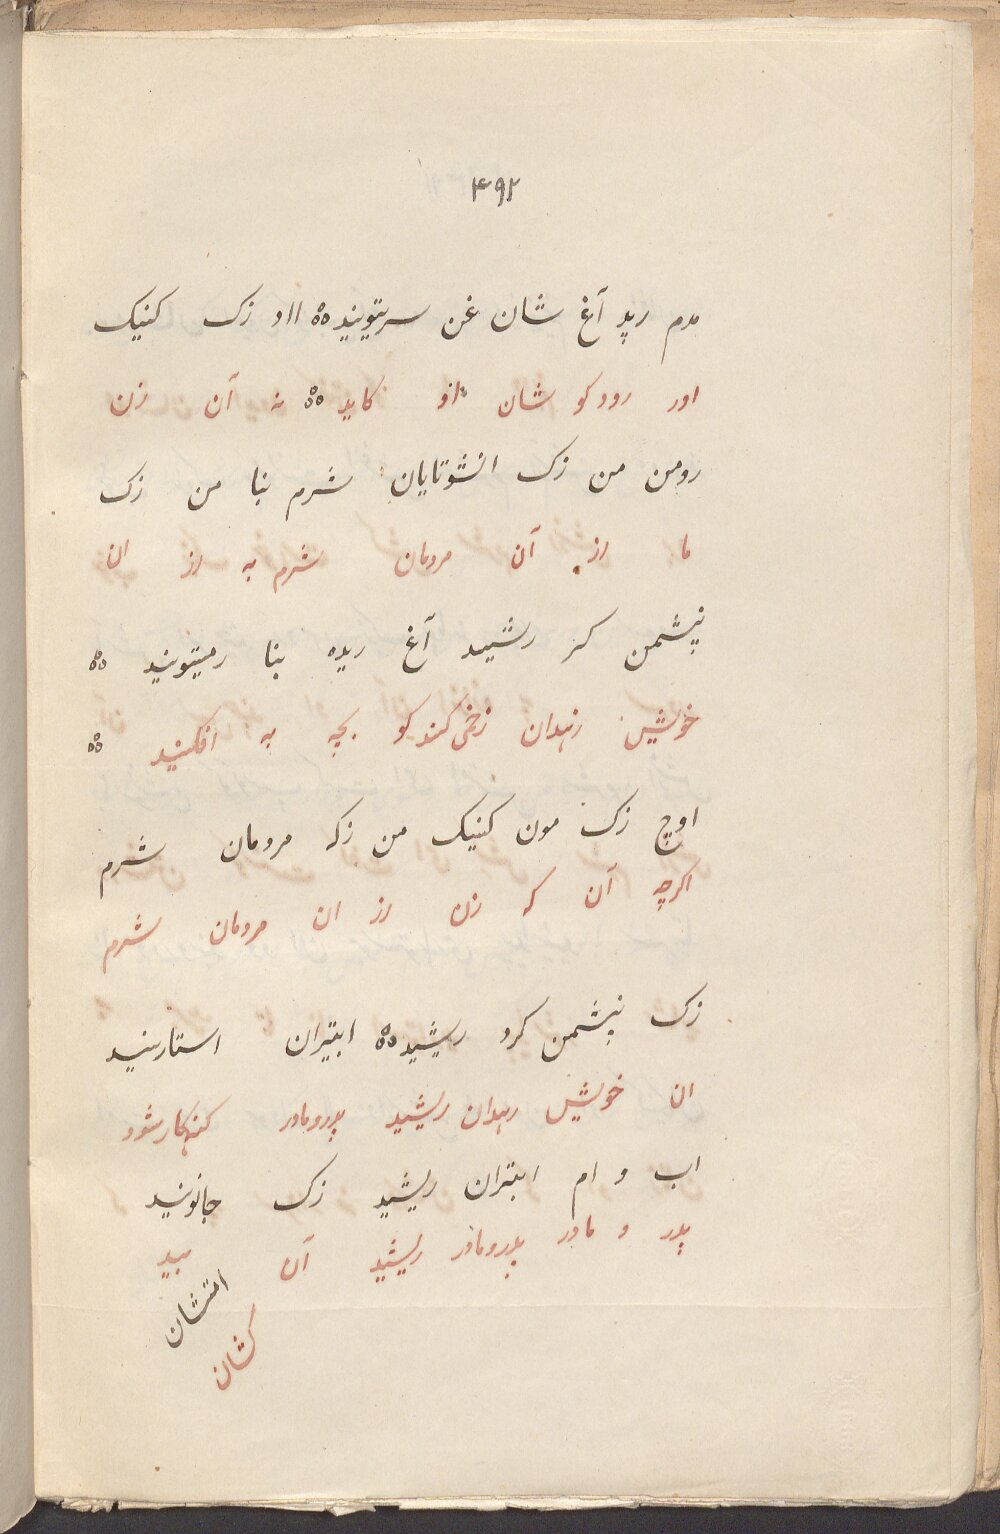 ۴۹۲
مدم رید آغ شان غن سریتویند ه‍ه‍ه ااد زک کنیک
اور رود کو شان اندر کاید ه‍ه‍ه نه آن زن
رومن من زک انشوتایان شرم بنا من زک
ما از آن مردمان شرم به از ان
نپشمن کر رشید آغ ریده بنا رمیتویند ه‍ه‍ه
خویش زهدان زخمی کند کو بچه به افکنید ه‍ه‍ه
اوچ زک مون کنیک من زک مردمان شرم
اکرچه آن که زن از ان مردمان شرم
زک نپشمن کرد ریشید ه‍ه‍ه ابتیران استارنید
ان خویش زهدان ریشید پدر و مادر کنهکار شود
اب و ام ابتران ریشید زک جانونید
پدر و مادر پدر و مادر ریشید آن بید
امتشان
کشان